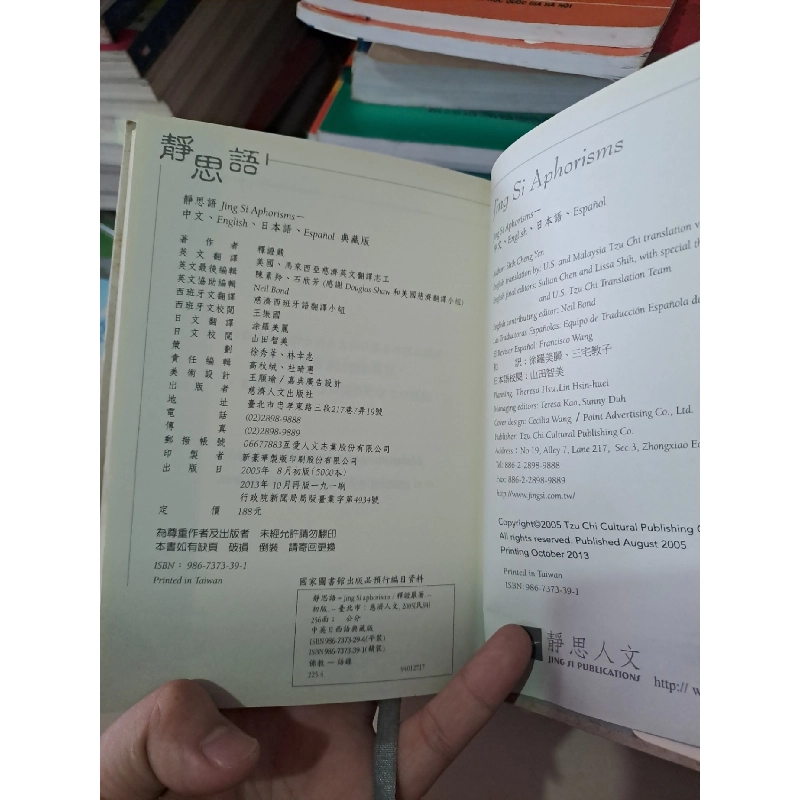 QUỐC GIA HÀ NỘI
靜思語
靜思語 Jing Si Aphorisms—
中文、English、日本語、Español 典藏版
著作者 釋證嚴
英文翻譯 美國、馬來西亞慈濟英文翻譯志工
英文最後編輯 陳素玲、石欣芳(感謝 Douglas Shaw 和美國慈濟翻譯小組)
英文協助編輯 Neil Bond
西班牙文翻譯 慈濟西班牙語翻譯小組
西班牙文校閱 王振國
日文翻譯 涂羅美麗
日文校閱 山田智美
策劃 徐秀華、林幸忠
責任編輯 高秋絨、杜晴惠
美術設計 王順瑜/嘉典廣告設計
出版者 慈濟人文出版社
地址 臺北市忠孝東路三段217巷7弄19號
電話 (02)2898-9888
傳真 (02)2898-9889
郵撥帳號 06677883互愛人文志業股份有限公司
印製者 新豪華製版印刷股份有限公司
出版日 2005年8月初版(5000本)
2013年10月再版一九一刷
行政院新聞局局版臺業字第4934號
定價 188元
為尊重作者及出版者 未經允許請勿翻印
本書如有缺頁 破損 倒裝 請寄回更換
ISBN: 986-7373-39-1
Printed in Taiwan
國家圖書館出版品預行編目資料
靜思語=jing Si aphorisms/釋證嚴著.—
初版.—臺北市:慈濟人文,2005[民94]
256面; 公分
中英日西語典藏版
ISBN986-7373-29-4(平裝)
ISBN986-7373-39-1(精裝)
佛教—語錄
225.4 94012717
Jing Si Aphorisms
Jing Si Aphorisms—
中文、English、日本語、Español
Author: Shih Cheng Yen
English translation by: U.S. and Malaysia Tzu Chi translation
English final editors: Sulion Chen and Lissa Shih, with special
and U.S. Tzu Chi Translation Team
English contributing editor: Neil Bond
Las Traductoras Españolas: Equipo de Traducción Española
El Revisor Español: Francisco Wang
訳:涂羅美麗、三宅教子
日本語校閱:山田智美
Planning: Theresa Hsu, Lin Hsin-huei
Managing editors: Teresa Kao, Sunny Duh
Cover design: Cecilia Wang / Point Advertising Co., Ltd.
Publisher: Tzu Chi Cultural Publishing Co.
Address: No 19, Alley 7, Lane 217, Sec 3, Zhongxiao
Tel: 886-2-2898-9888
Fax: 886-2-2898-9889
http://www.jingsi.com.tw/
Copyright©2005 Tzu Chi Cultural Publishing
All rights reserved. Published August 2005
Printing October 2013
Printed in Taiwan
ISBN: 986-7373-39-1
靜思人文
JING SI PUBLICATIONS
http://